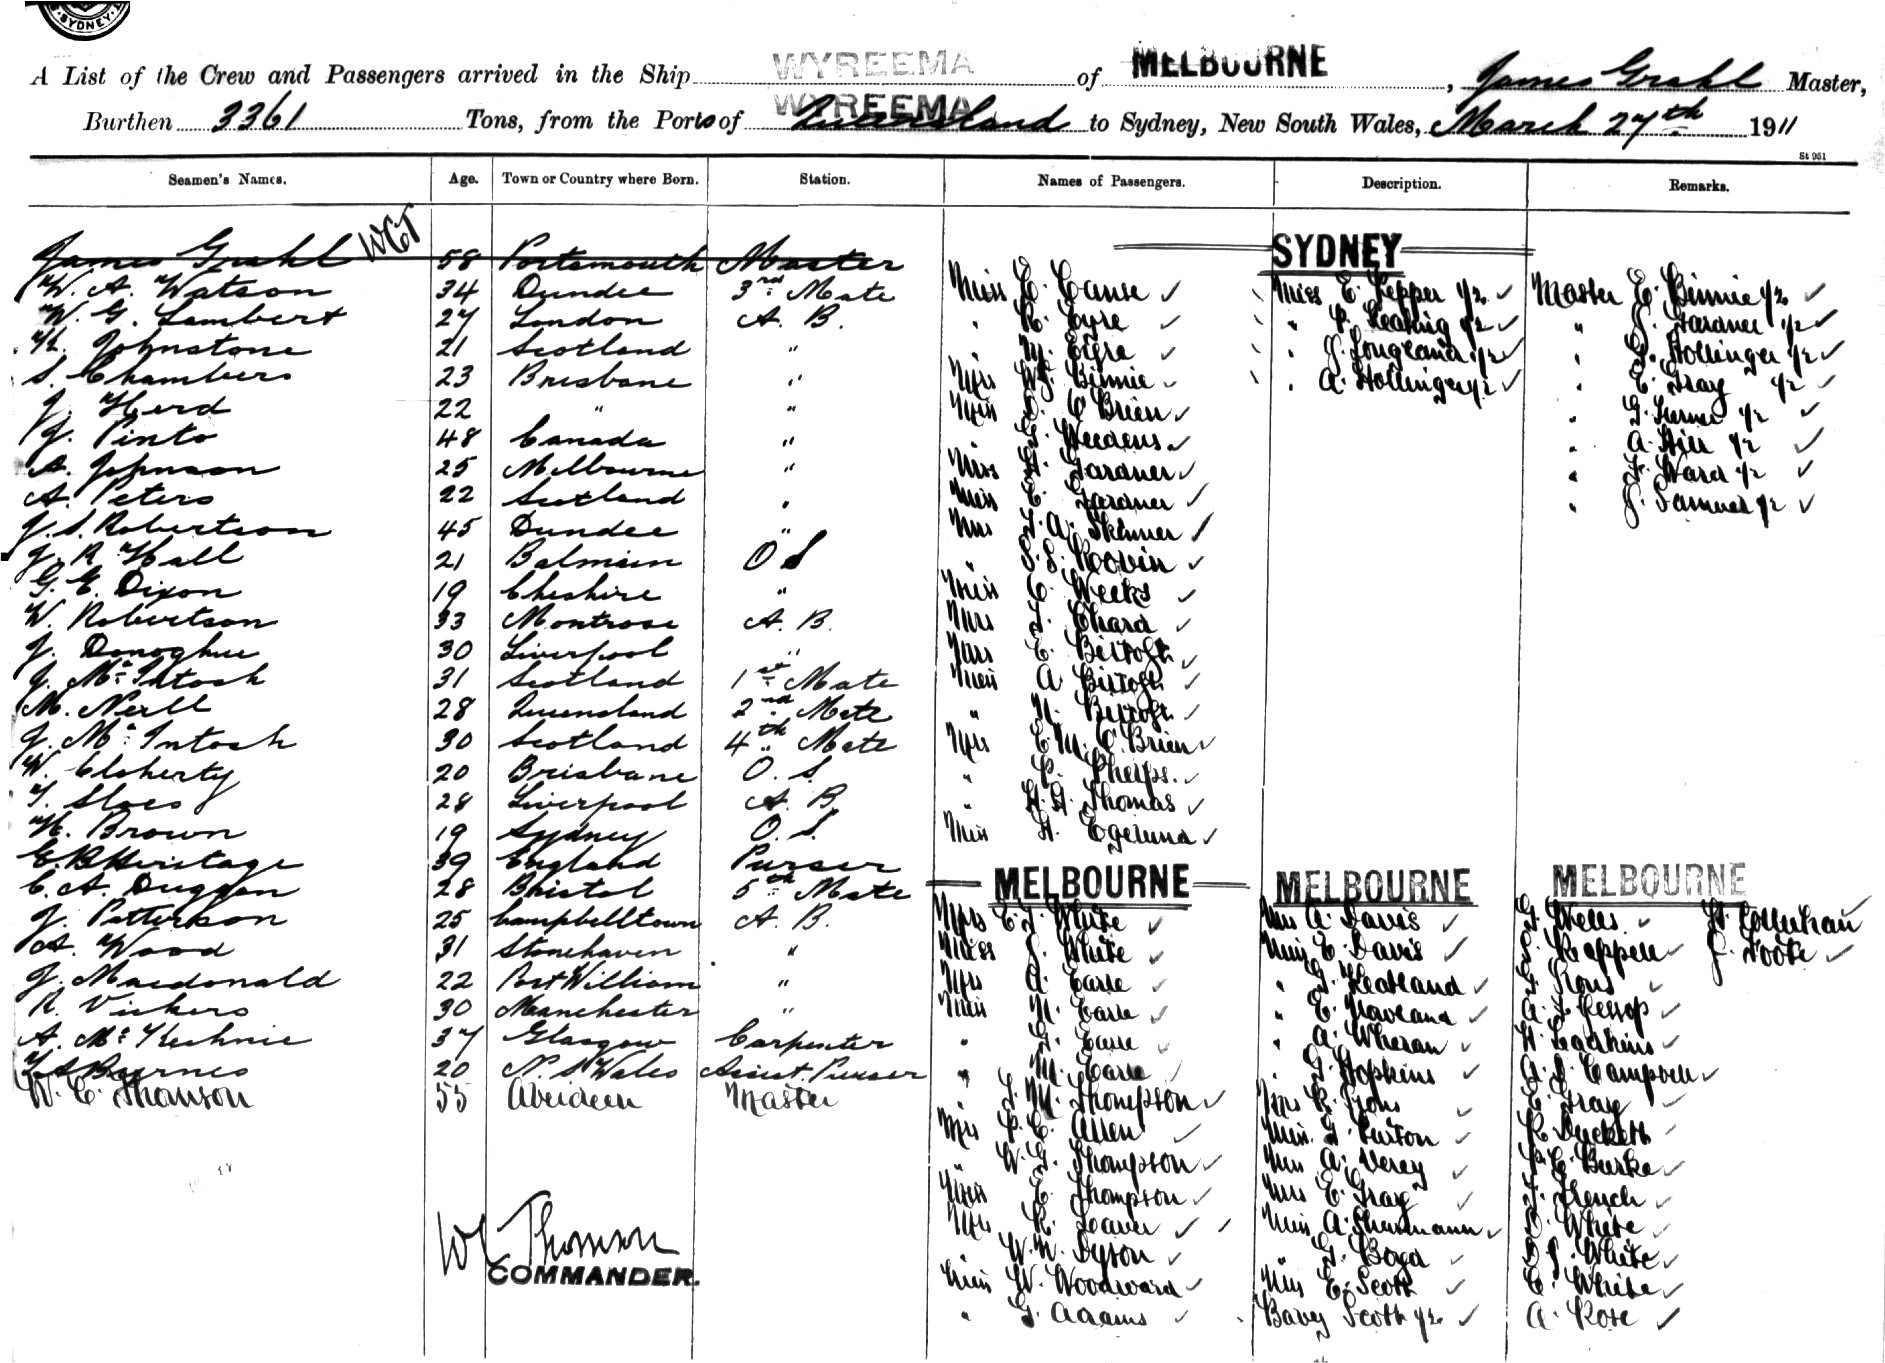 SYDNEY
WYREEMA MELBOURNE
A List of the Crew and Passengers arrived in the Ship of , James Grahl Master,
WYREEMA
Burthen 3361 Tons, from the Ports of Queensland to Sydney, New South Wales, March 27th 1911
St 951
Seamen's Names. Age. Town or Country where Born. Station. Names of Passengers. Description. Remarks.
James Grahl WCT 58 Portsmouth Master
W. A. Watson 34 Dundee 3rd Mate
W. G. Lambert 27 London A. B.
H. Johnstone 21 Scotland "
S. Chambers 23 Brisbane "
J. Herd 22 " "
J. Pinto 48 Canada "
A. Johnson 25 Melbourne "
A. Peters 22 Scotland "
J. S. Robertson 45 Dundee "
J. R. Hall 21 Balmain O S
G. E. Dixon 19 Cheshire "
W. Robertson 33 Montrose A. B.
J. Donoghue 30 Liverpool "
J. McIntosh 31 Scotland 1st Mate
M. Neill 28 Queensland 2nd Mate
J. McIntosh 30 Scotland 4th Mate
W. Cloherty 20 Brisbane O. S.
28 Liverpool A. B.
H. Brown 19 Sydney O. S.
E. B. Heritage 39 England Purser
C. A. Duggan 28 Bristol 5th Mate
J. Patterson 25 Campbelltown A. B.
A. Wood 31 Stonehaven "
J. Macdonald 22 Port William "
R. Vickers 30 Manchester "
A. McKechnie 37 Glasgow Carpenter
Bernes 20 N. S. Wales Assist. Purser
W. C. Thomson 55 Aberdeen Master
W C Thomson
COMMANDER.
SYDNEY
Miss E. Cause
R. Eyre
M. Eyre
Mrs Binnie
Miss O'Brien
G. Weedens
Mrs Gardner
Miss E. Gardner
Mrs A. Skinner
Miss C. Weeks
Mrs Chard
Mrs E. Bistoft
Miss A Bistoft
" H. Bistoft
Mrs E. M. O'Brien
" Phelps
" Thomas
Miss H. Egelund
MELBOURNE
Mrs E. J. White
Miss J. White
Mrs A. Earle
Miss M. Earle
" G. Earle
" M. Earle
" M. Thompson
Mrs C. Allen
" W. G. Thompson
Miss E. Thompson
Mrs R. Leaver
W. M. Dyson
Miss W. Woodward
" G. Adams
Miss E. Pepper ½
" Keating ½
" J. Longland ½
" A. Hollinger ½
MELBOURNE
Mrs A. Davis
Miss E. Davis
" Heatland
" E. Haveland
" A. Wheran
" G. Hopkins
Mrs R. Irons
Miss Burton
Mrs A. Verey
Mrs E. Gray
Miss A.
" G. Boyd
Mrs E. Scott
Baby Scott ½
Master E. Binnie ½
" J. Gardner ½
" G. Hollinger ½
" E. Gray ½
" G. ½
" A. Hill ½
" F. Ward ½
" J. Samuel ½
MELBOURNE
Wells
Keppell J. Foote
Irons
A. Jessop
H. Larkins
A. D. Campbell
E. Gray
R Duckett
C. Burke
French
White
D J. White
E. White
A. Rose